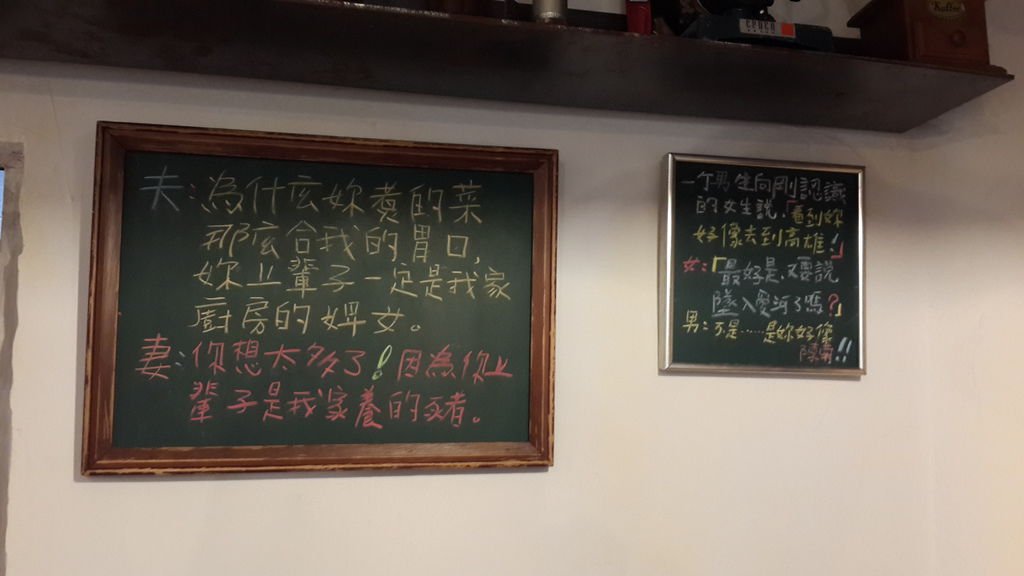 夫:為什庅妳煮的菜
那庅合我的胃口,
妳上輩子一定是我家
廚房的婢女。
妻:你想太多了!因為你上
輩子是我家養的豬。
一个男生向剛認識
的女生說,「看到妳
好像去到高雄!」
女:「最好是不要說
墜入愛河了嗎?」
男:不是……是妳好像
!!
Kaffee